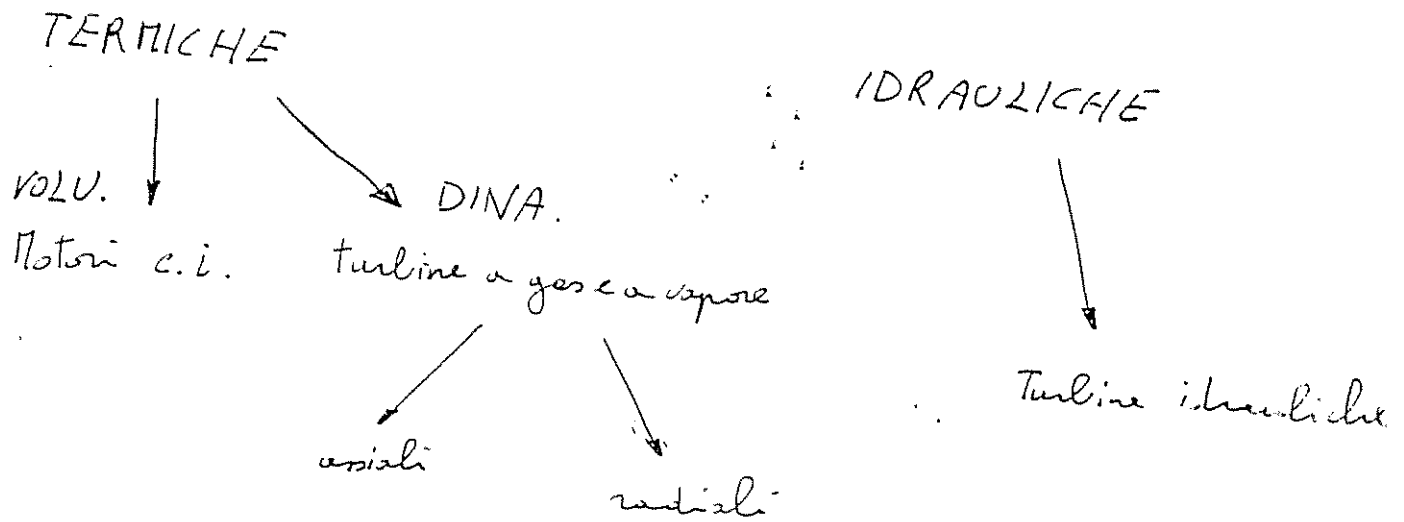 TERMICHE
IDRAULICHE
VOLU.
DINA.
Motori c.i.
turbine a gas e a vapore
Turbine idrauliche
assiali
radiali